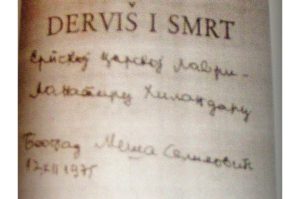 DERVIŠ I SMRT
Српској царској лаври-
манастиру Хиландару
Београд Меша Селимовић
12XII 1975